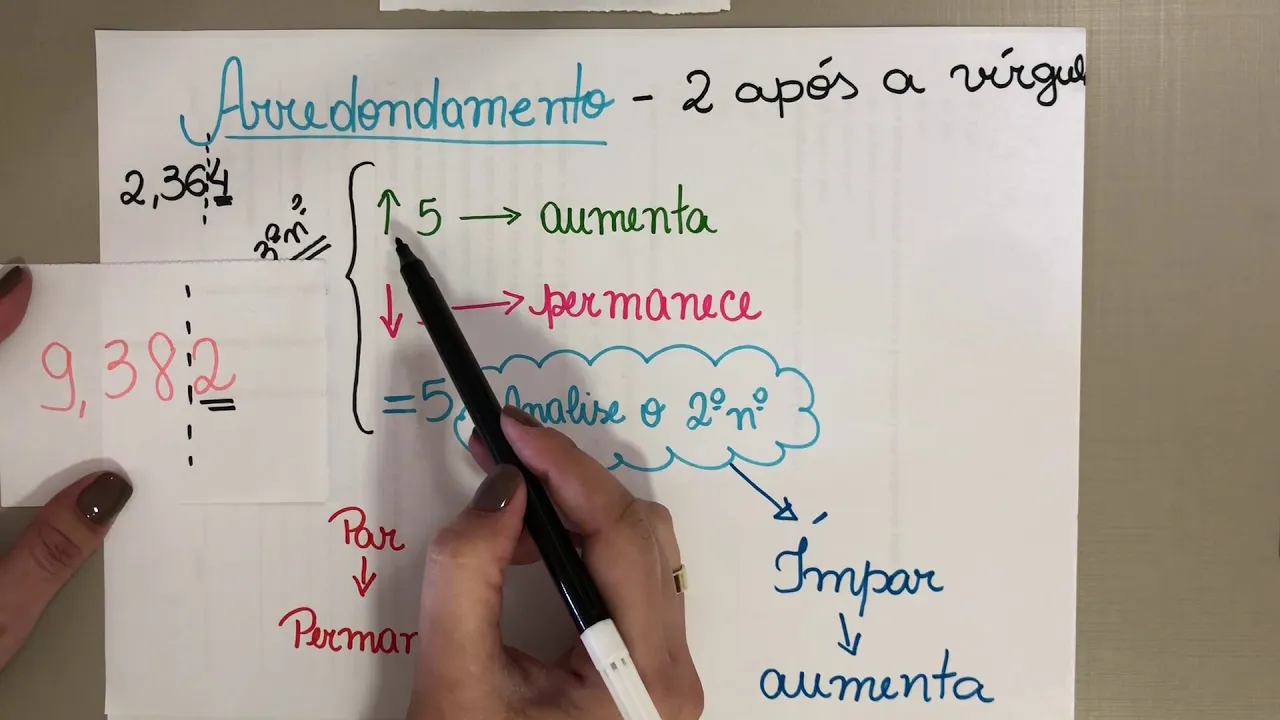 Arredondamento - 2 após a
2,364
3º nº
↑ 5 → aumenta
↓ → permanece
= 5 Analise o 2º nº
9,382
Par
↓
Ímpar
↓
aumenta